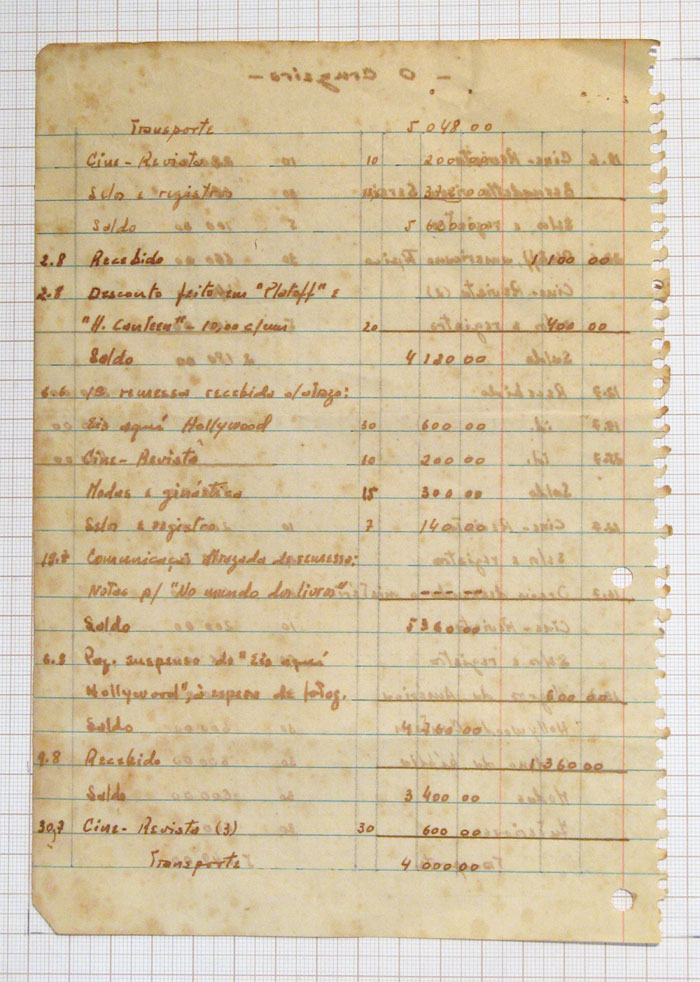 Transporte 5 048 00
Cine-Revista 10 200 00
Selos e registros
Saldo 5
2.8 Recebido 1 100 00
2.8 Desconto feito em "Platoff" e
"H. Canteen" - 10,00 c/um 20 400 00
Saldo 4 180 00
6.6 1ª remessa recebida c/atrazo:
Eis aquí Hollywood 30 600 00
Cine-Revista 10 200 00
Modas e ginástica 15 300 00
Selos e registros 7 140 00
19.7 Comunicação atrazada de remessa:
Notas p/ "No mundo dos livros" - - - - -
Saldo 5 360 00
6.8 Pag. suspenso de "Eis aquí
Hollywood", à espera de fotog. 600 00
Saldo 4 760 00
9.8 Recebido 1 360 00
Saldo 3 400 00
30.7 Cine-Revista (3) 30 600 00
Transporte 4 000 00